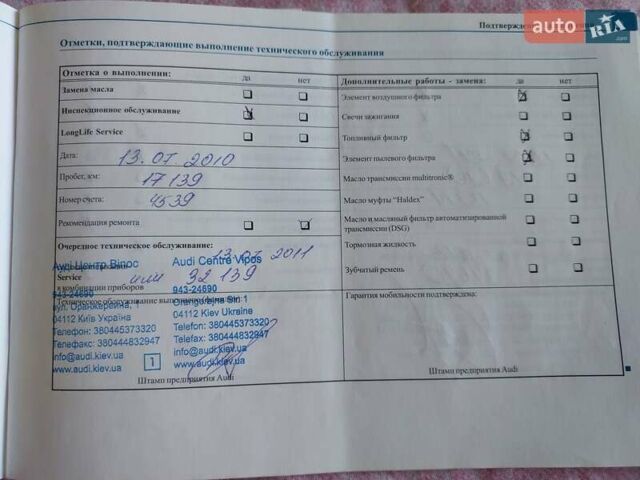 auto RIA .com
Отметки, подтверждающие выполнение технического обслуживания
Отметка о выполнении: да нет
Замена масла
Инспекционное обслуживание
LongLife Service
Дата: 13.07.2010
Пробег, км: 17 139
Номер счета: 4539
Рекомендация ремонта
Очередное техническое обслуживание:
13.07 2011
или 32 139
Service
в комбинации приборов
Техническое обслуживание выполнили
Ауді Центр Віпос
943-24690
вул. Оранжерейна, 1
04112 Київ Україна
Телефон: 380445373320
Телефакс: 380444832947
info@audi.kiev.ua
www.audi.kiev.ua
1
Audi Centre Vipos
943-24690
Orangerejna Str. 1
04112 Kiev Ukraine
Telefon: 380445373320
Telefax: 380444832947
info@audi.kiev.ua
www.audi.kiev.ua
Штамп предприятия Audi
Дополнительные работы - замена: да нет
Элемент воздушного фильтра
Свечи зажигания
Топливный фильтр
Элемент пылевого фильтра
Масло трансмиссии multitronic®
Масло муфты "Haldex"
Масло и масляный фильтр автоматизированной
трансмиссии (DSG)
Тормозная жидкость
Зубчатый ремень
Гарантия мобильности подтверждена:
Штамп предприятия Audi